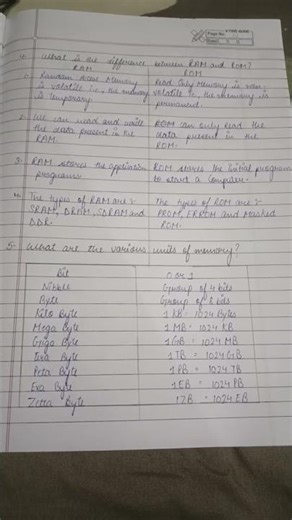 4. What is the difference between RAM and ROM?
RAM ROM
1. Random Access Memory Read Only Memory is non
is volatile i.e., the memory volatile i.e., the memory is
is temporary permanent.
2. We can read and write ROM can only read the
the data present in the data present in the
RAM. ROM.
3. RAM stores the application ROM stores the initial program
programs. to start a computer.
4. The types of RAM are: The types of ROM are:
SRAM, DRAM, SDRAM and PROM, EPROM and Masked
DDR. ROM.
5. What are the various units of memory?
Bit 0 or 1
Nibble Group of 4 bits
Byte Group of 8 bits
Kilo Byte 1 KB = 1024 Bytes
Mega Byte 1 MB = 1024 KB
Giga Byte 1 GB = 1024 MB
Tera Byte 1 TB = 1024 GB
Peta Byte 1 PB = 1024 TB
Exa Byte 1 EB = 1024 PB
Zetta Byte 1 ZB = 1024 EB